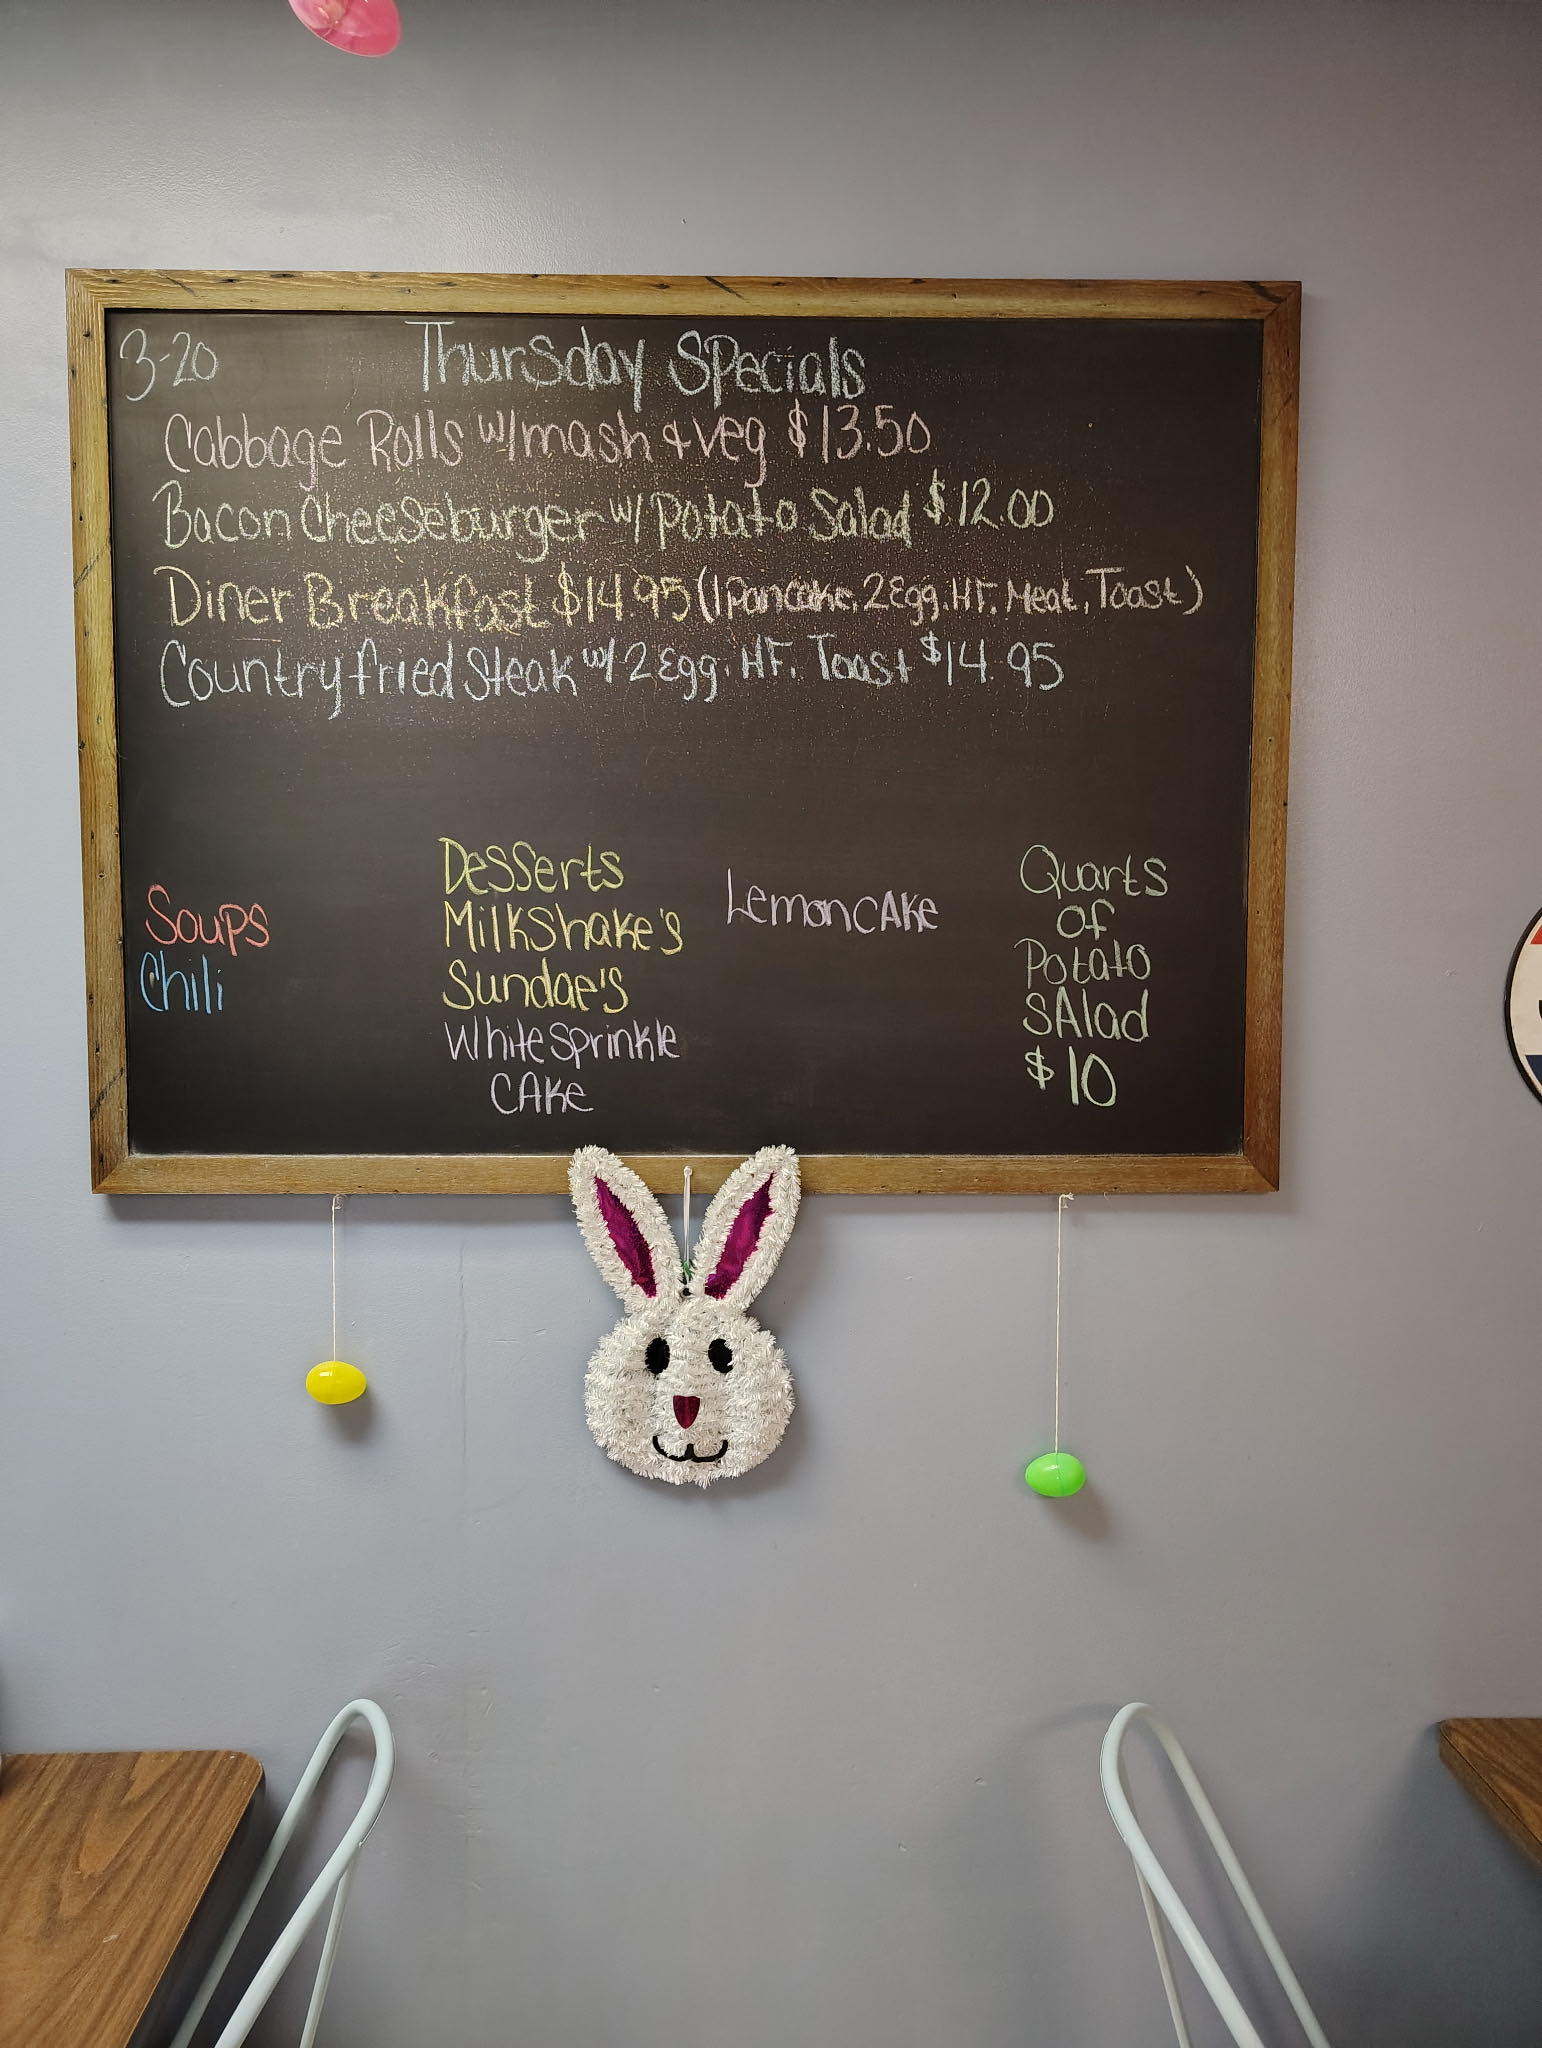 3-20
Thursday Specials
Cabbage Rolls w/mash & veg $13.50
Bacon Cheeseburger w/ Potato Salad $12.00
Diner Breakfast $14.95 (1 Pancake, 2 Egg, HF, Meat, Toast)
Country fried Steak w/ 2 Egg, HF, Toast $14.95
Soups
Chili
Desserts
MilkShake's
Sundae's
White Sprinkle
CAKe
Lemon CAKe
Quarts
Of
Potato
SAlad
$10